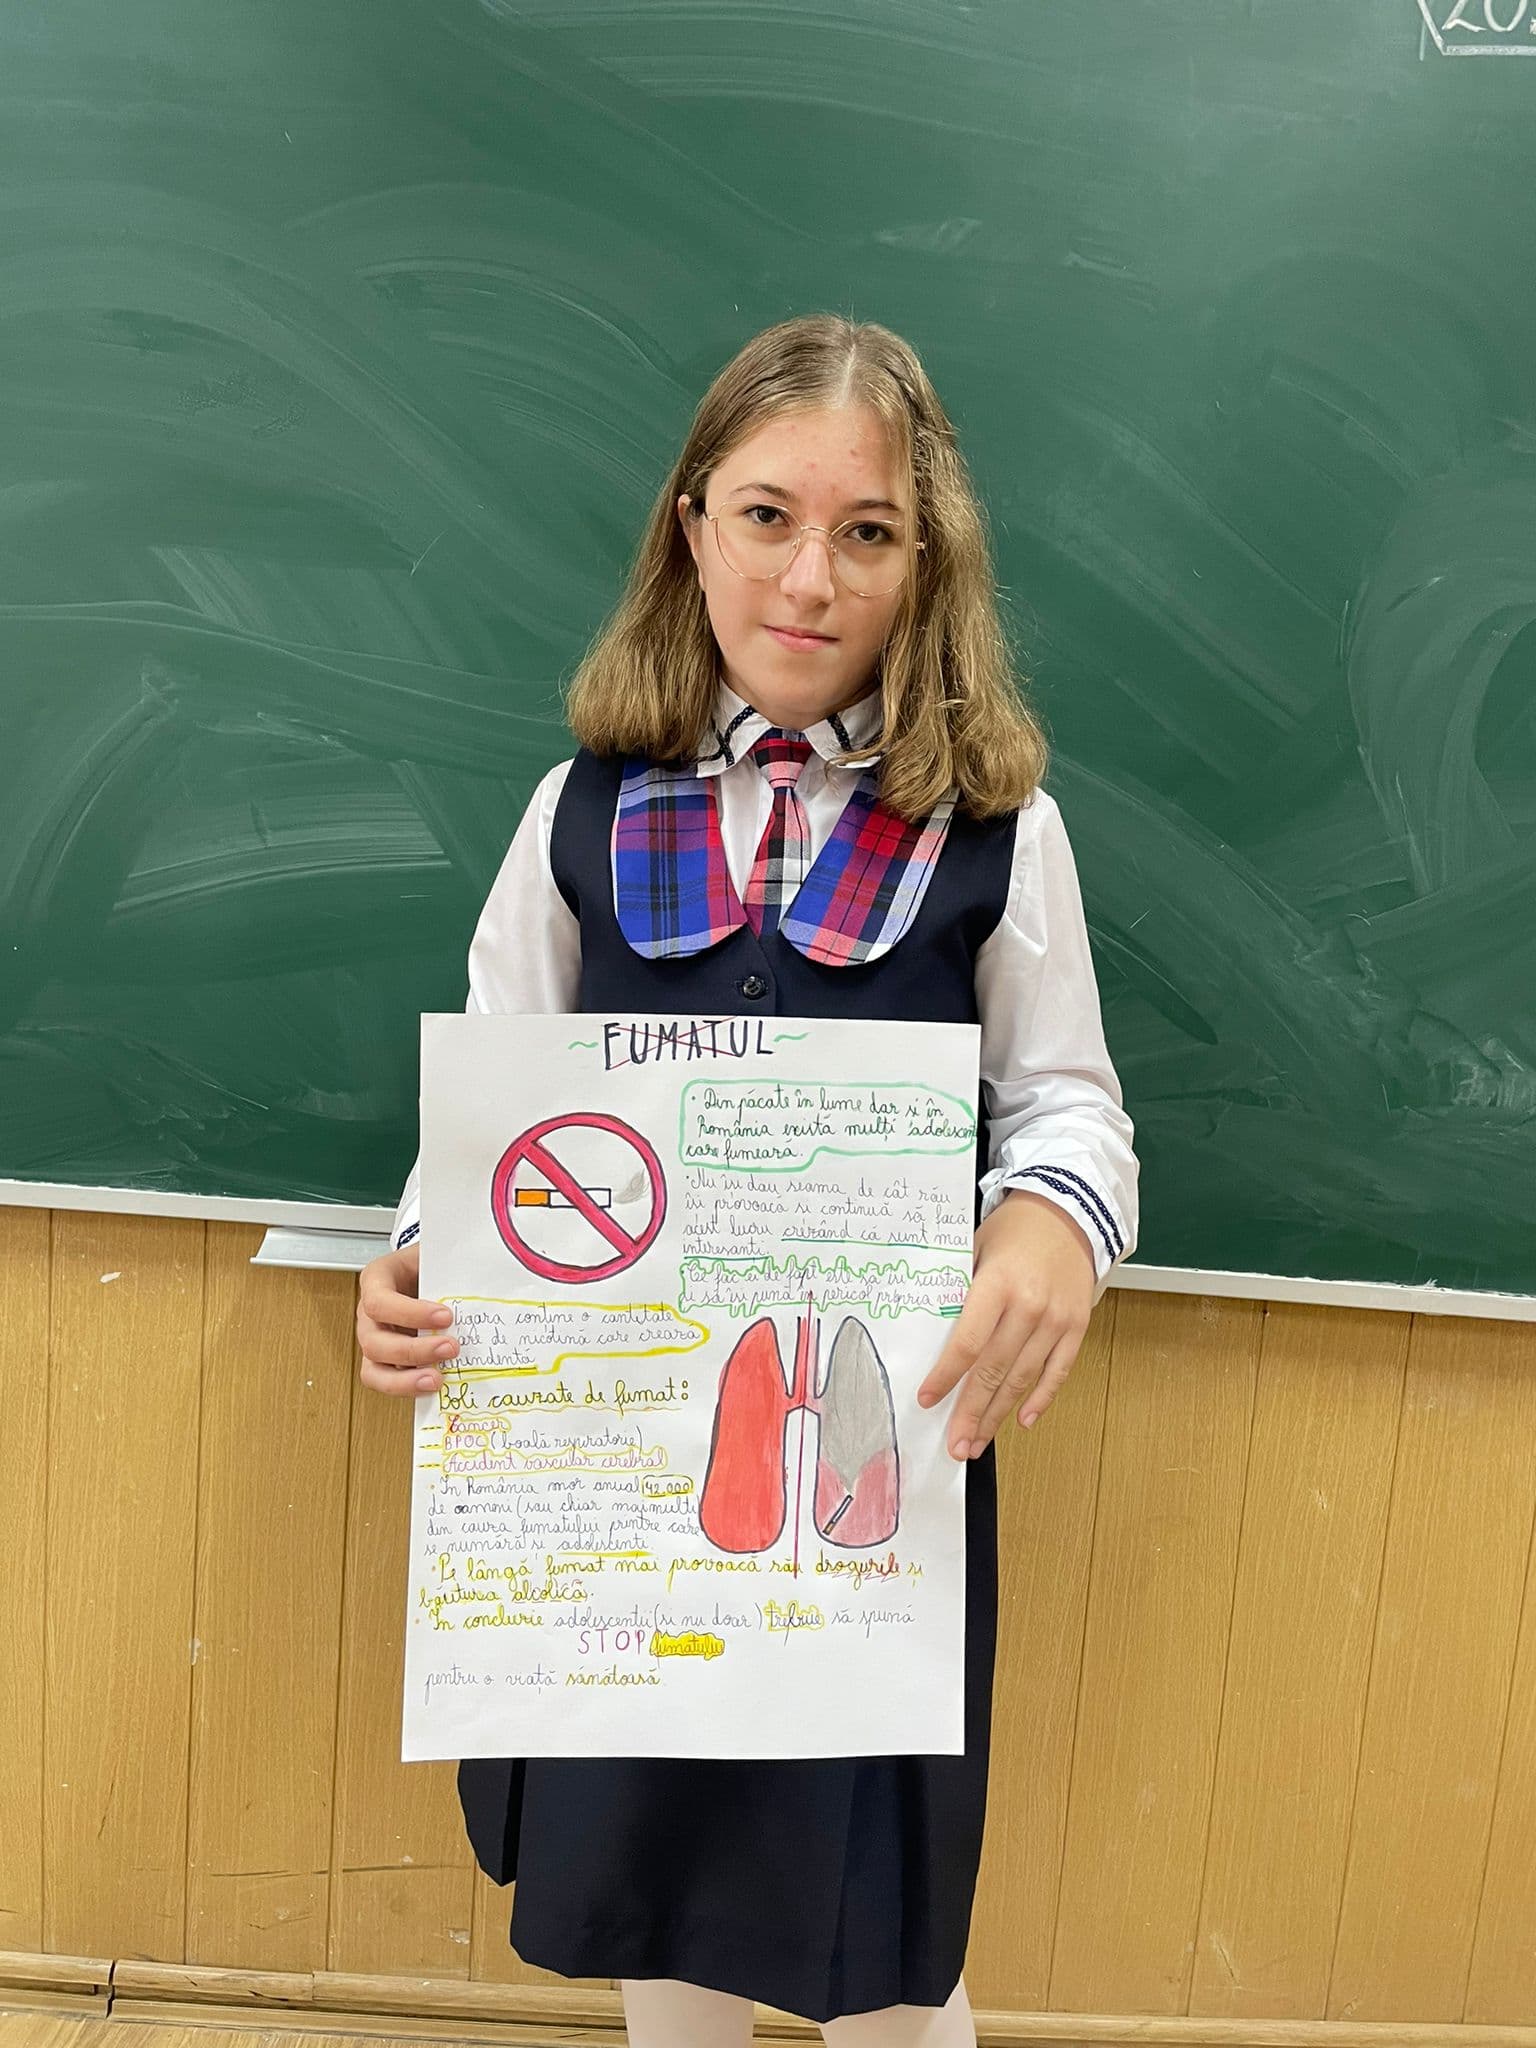 20
~FUMATUL~
• Din păcate în lume dar si în
România există mulți adolescenți
care fumează.
• Nu îsi dau seama de cât rău
îsi provoacă si continuă să facă
acest lucru crezând că sunt mai
interesanti.
• Ce fac ei de fapt este să îsi scurteze
si să îsi pună în pericol propria viață
Țigara conține o cantitate
are de nicotină care crează
dependență
Boli cauzate de fumat:
- Cancer
- BPOC (boală respiratorie)
- Accident vascular cerebral
• In România mor anual 42.000
de oameni (sau chiar mai multi)
din cauza fumatului printre care
se numără si adolescenti.
• Pe lângă fumat mai provoacă rău drogurile si
băutura alcolică.
• In concluzie adolescentii (si nu doar) trebuie să spună
STOP fumatului
pentru o viață sănătoasă.